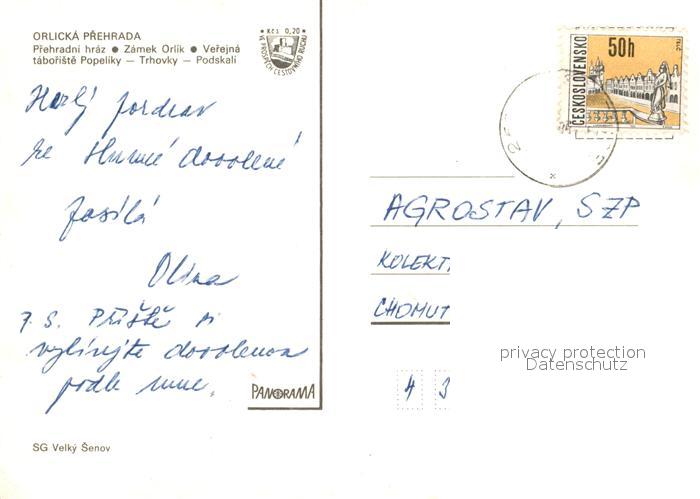 ORLICKÁ PŘEHRADA
Přehradní hráz ● Zámek Orlík ● Veřejná
tábořiště Popelíky — Trhovky — Podskalí
Kčs 0,20
VE PROSPĚCH CESTOVNÍHO RUCHU
ČESKOSLOVENSKO
50h
Hezký pozdrav
ze slunné dovolené
posílá
Olina
P. S. Příště si
vybírejte dovolenou
podle mne.
AGROSTAV, SZP
KOLEKT.
CHOMUT
4 3
privacy protection
Datenschutz
PANORAMA
SG Velký Šenov